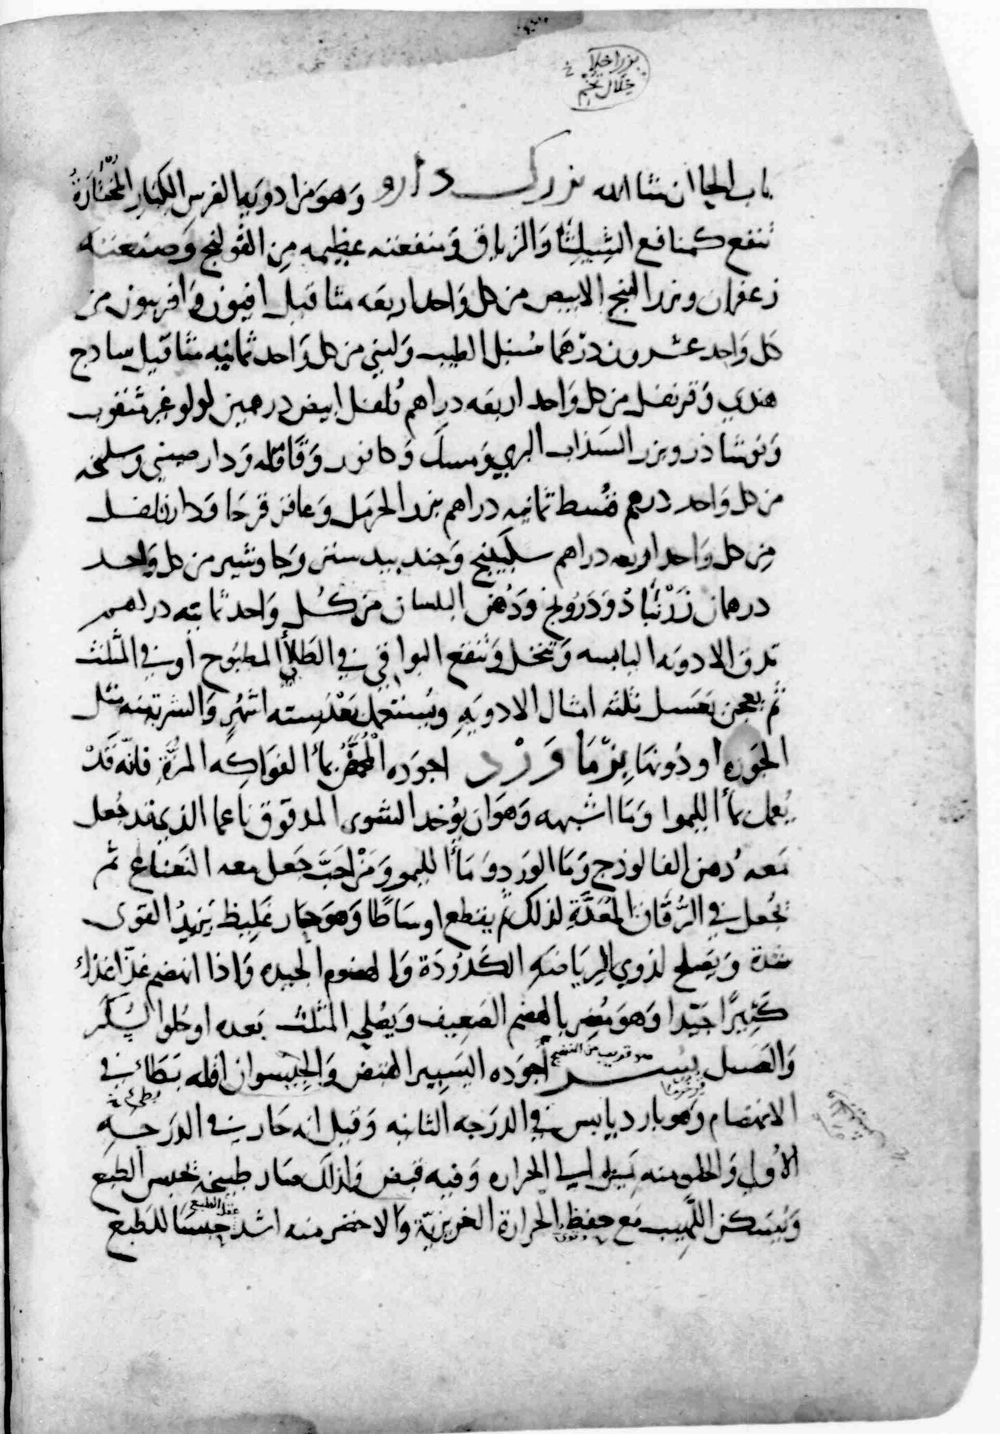 بزر اخلا
خلال تخم
باب الحا ان شا الله بزرك دارو وهو من ادوية الفرس الكبار المختارة
تنفع كمنافع الشيلثا والترياق ومنفعته عظيمه من القولنج وصنعته
زعفران وبزر البنج الابيض من كل واحد اربعه مثاقيل افيون وافربيون من
كل واحد عشرون درهما سنبل الطيب ولبني من كل واحد ثمانيه مثاقيل سادج
هندي وقرنفل من كل واحد اربعه دراهم فلفل ابيض درهمين لولو غير مثقوب
ونوشاذر وبزر السذاب البري ومسك وكافور وقاقله ودار صيني وسليخه
من كل واحد درهم قسط ثمانيه دراهم بزر الحرمل وعاقر قرحا ودار فلفل
من كل واحد اربعه دراهم سكبينج وجند بيدستر وجاوشير من كل واحد
درهمان زرنباذ ودرونج ودهن البلسان من كل واحد ثمانيه دراهم
تدق الادويه اليابسه وتنخل وتنقع البواقي في الطلأ المطبوح او في المثلث
ثم يعجن بعسل ثلثه امثال الادويه ويستعمل بعد سته اشهر والشربه منه مثل
الجوزه او دونها بزماورد اجوده المحمض بمأ الفواكه المزة فانه قد
يعمل بمأ الليموا وما اشبهه وهو ان يوخد الشوى المدقوق ناعما الذي قد جعل
معه دهن الفالوذج وما الورد وما الليمو ومن احب جعل معه النعناع ثم
يجعل في الرقاق المعدة لذلك ثم يقطع اوساطا وهو حار غليظ يزيد القوى
شدة ويصلح لذوي الرياضه الكدودة والهضوم الجيده واذا انهضم غذا غذاء
كثيرا جيدا وهو مضر بالهضم الضعيف ويصلحه المثلث بعده او حلوا السكر
والعسل بسر هو قريب من النضج اجوده اليسير الهش والجيسوان اقله بطأ في
الانهضام وهو بارد يابس في الدرجه الثانيه وقيل انه حار في الدرجه
الاولي والحلو منه يميل الي الحراره وفيه قبض ولذلك صار طبيخه يحبس الطبع
ويسكن اللهيب مع حفظ الحرارة الغريزية والاخضر منه اشد حبسا للطبع
عقل الطبع